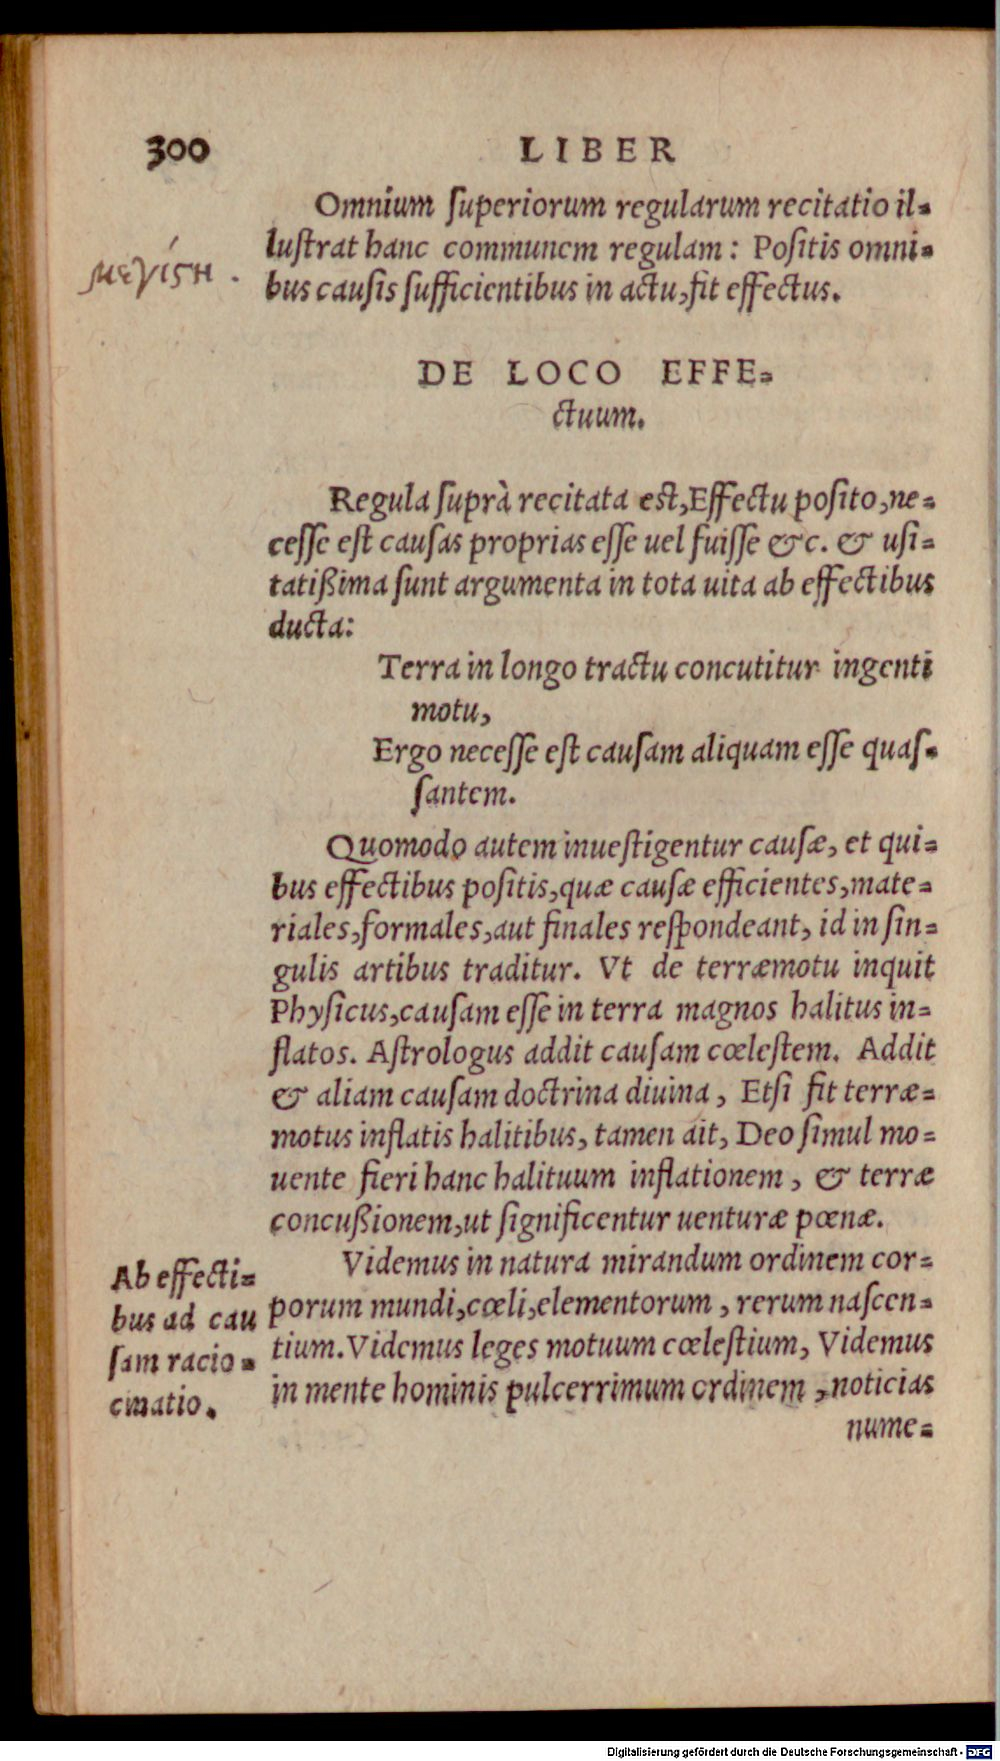 300 LIBER
Omnium ſuperiorum regularum recitatio il⸗
luſtrat hanc communem regulam: Poſitis omni⸗
μεγίςη.
bus cauſis ſufficientibus in actu, fit effectus.
DE LOCO EFFE⸗
ctuum.
Regula ſuprà recitata eſt, Effectu poſito, ne⸗
ceſſe eſt cauſas proprias eſſe uel fuiſſe &c. & uſi⸗
tatißima ſunt argumenta in tota uita ab effectibus
ducta:
Terra in longo tractu concutitur ingenti
motu,
Ergo neceſſe eſt cauſam aliquam eſſe quaſ⸗
ſantem.
Quomodo autem inueſtigentur cauſæ, et qui⸗
bus effectibus poſitis, quæ cauſæ efficientes, mate⸗
riales, formales, aut finales reſpondeant, id in ſin⸗
gulis artibus traditur. Vt de terræmotu inquit
Phyſicus, cauſam eſſe in terra magnos halitus in⸗
flatos. Aſtrologus addit cauſam cœleſtem. Addit
& aliam cauſam doctrina diuina, Etſi fit terræ⸗
motus inflatis halitibus, tamen ait, Deo ſimul mo⸗
uente fieri hanc halituum inflationem, & terræ
concußionem, ut ſignificentur uenturæ pœnæ.
Videmus in natura mirandum ordinem cor⸗
porum mundi, cœli, elementorum, rerum naſcen⸗
tium. Videmus leges motuum cœleſtium, Videmus
in mente hominis pulcerrimum ordinem, noticias
nume⸗
Ab effecti⸗
bus ad cau
ſam racio⸗
cinatio.
Digitalisierung gefördert durch die Deutsche Forschungsgemeinschaft - DFG